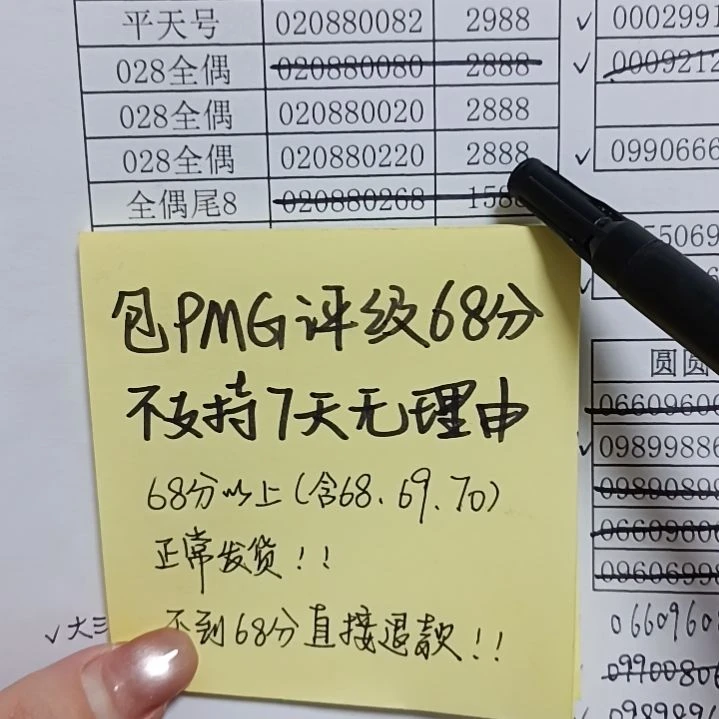 平天号 020880082 2988
028全偶 020880080 2888
028全偶 020880020 2888
028全偶 020880220 2888
全偶尾8 020880268
包PMG评级68分
不支持7天无理由
68分以上(含68、69、70)
正常发货!!
不到68分直接退款!!
✓ 大三
✓ 0002991
✓ 0009212
✓ 0990666
55069
圆圆
06609606
✓ 0989988
0989089
0660960
0960699
0660960
0990080
098989